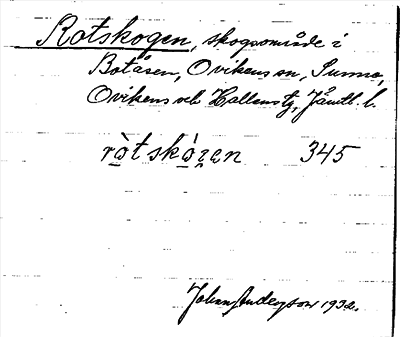 Rotskogen, skogsområde i
Botåsen, Ovikens sn, Sunne,
Ovikens och Hallens tg, Jämtl. l.
ròt skó̱gen 345
Johan Anderson 1932.